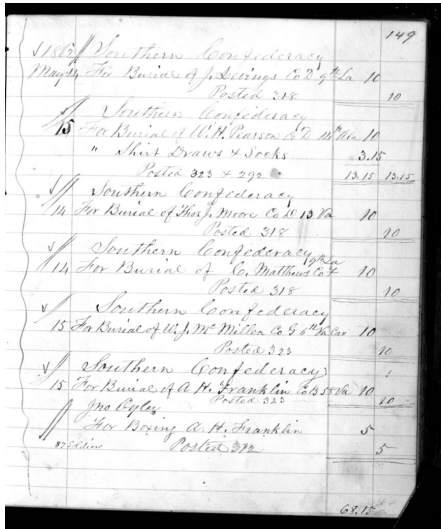 149
1862 Southern Confederacy
May 14 For Burial of J. Levings Co D. 9th La 10
Posted 318 10
Southern Confederacy
15 For Burial of W. H. Pearson Co D. 14th Ala 10
" Shirt Draws & Socks 3.15
Posted 323 & 292 13.15 13.15
Southern Confederacy
14 For Burial of Thos J. Moore Co D 13 Va 10
Posted 318 10
Southern Confederacy
14 For Burial of C. Matthews Co 9th La 10
Posted 318 10
Southern Confederacy
15 For Burial of W. J. McMillen Co G 6th Va Cav 10
Posted 323 10
Southern Confederacy
15 For Burial of A. H. Franklin Co B 58 Va 10
Posted 323 10
Jno Oyler
For Boxing A. H. Franklin 5
Posted 372 5
68.15